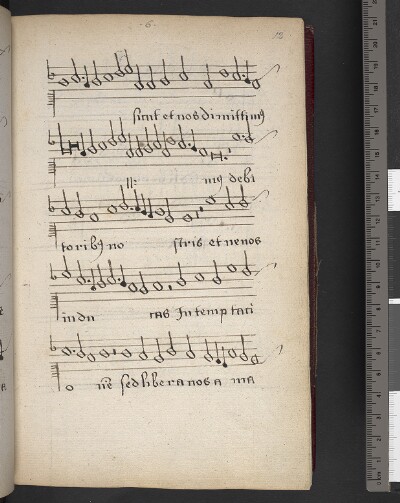 -6-
12
sicut et nos dimittimꝰ
ij: mꝰ debi
toribꝰ no stris et ne nos
indu cas In temptaci
o nē sed libera nos a ma